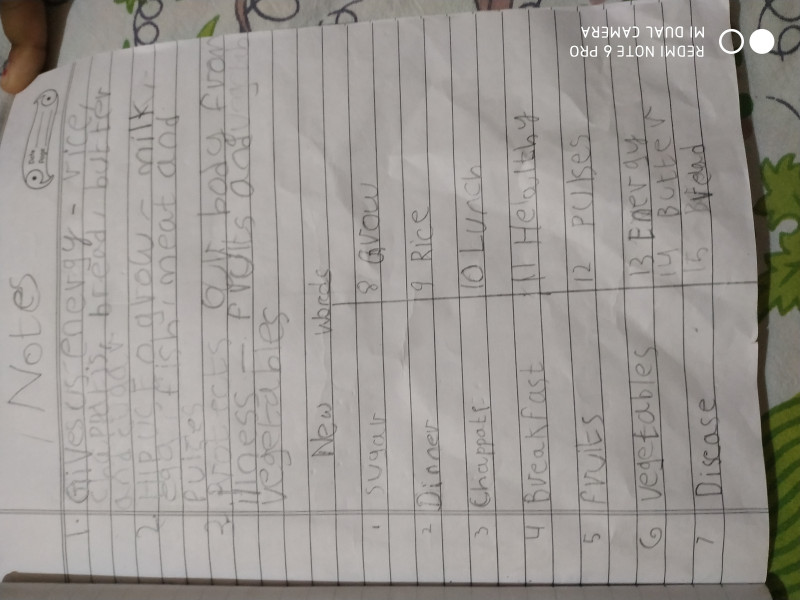 Notes
1. Gives us energy - rice,
chapatis, bread, butter
and sugar
2. Helps to grow - milk,
egg, fish, meat and
Pulses
3. Protects our body from
illness - fruits and
vegetables
New words
1 sugar
2 Dinner
3 Chappati
4 Breakfast
5 fruits
6 vegetables
7 Disease
8 Grow
9 Rice
10 Lunch
11 Helalthy
12 Pulses
13 Energy
14 Butter
15 bread
REDMI NOTE 6 PRO
MI DUAL CAMERA